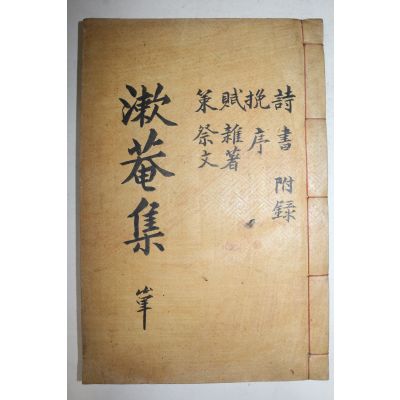 詩書 附録
挽 序
賦雜著
策祭文
漱菴集